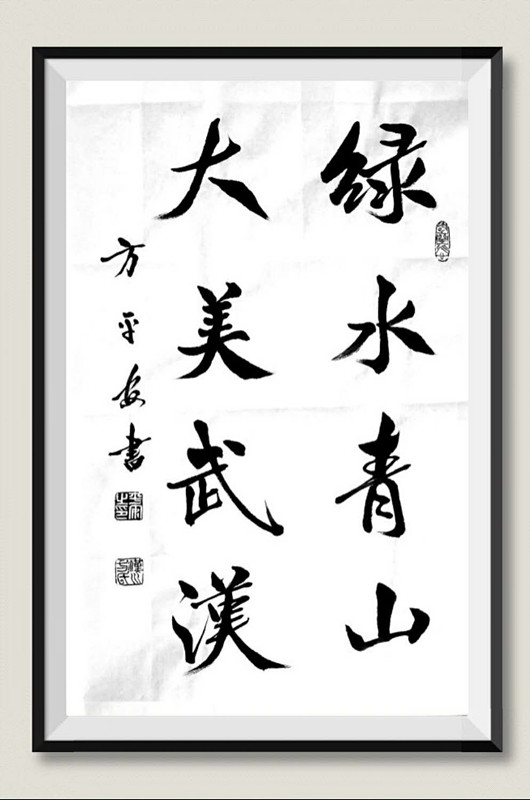 绿水青山
大美武漢
方平安書